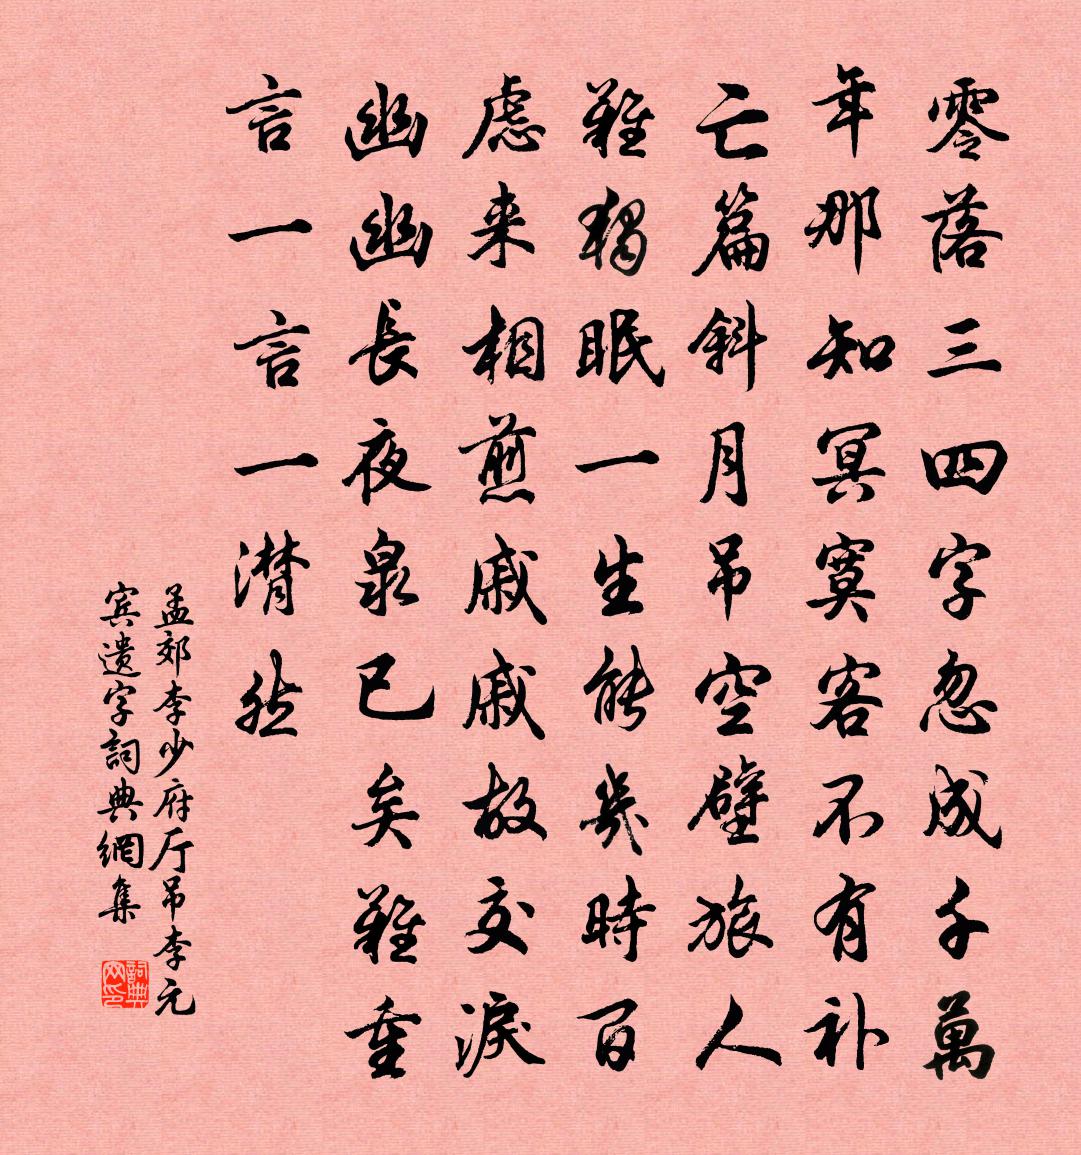 零落三四字忽成千萬
年那知冥寞客不有补
亡篇斜月吊空壁旅人
難獨眠一生能幾時百
慮来相煎戚戚故交淚
幽幽長夜泉已矣難重
言一言一潸然
孟郊李少府厅吊李元
宾遗字詞典網集
詞典网印